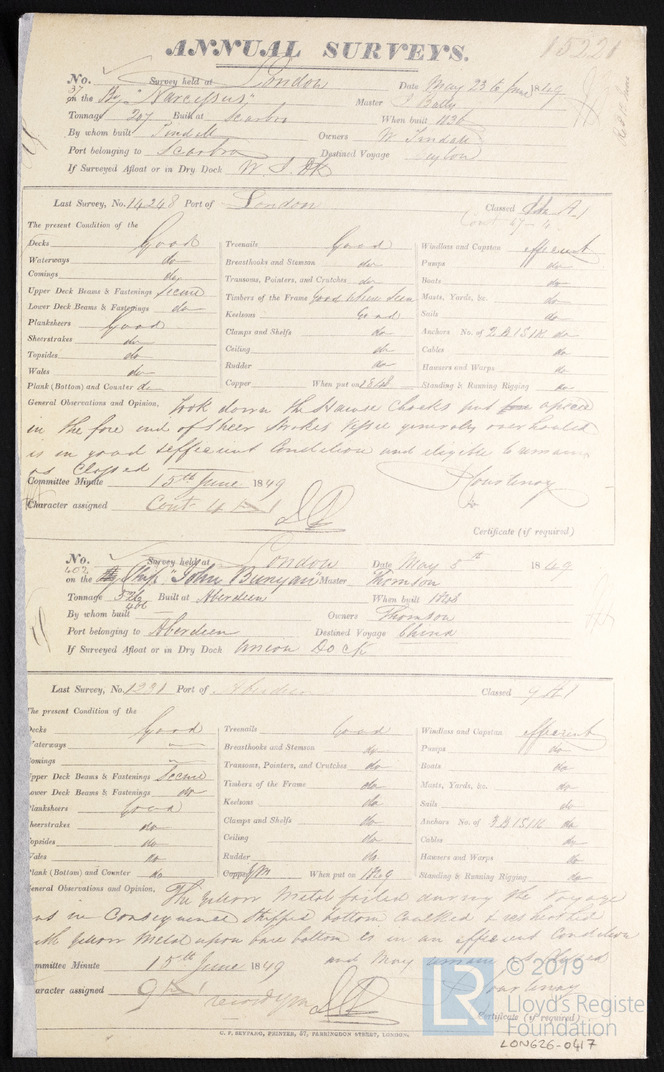 ANNUAL SURVEYS. 15221
No. Survey held at London Date May 23 to June 1849
37 on the Bg "Narcissus," Master
Tonnage 207 Built at Scarbro When built 1836
By whom built Tindall Owners W Tindall
Port belonging to Scarbro Destined Voyage Ceylon
If Surveyed Afloat or in Dry Dock
Last Survey, No. 14248 Port of London Classed
The present Condition of the
Decks Good Treenails Good Windlass and Capstan efficient
Waterways do Breasthooks and Stemson do Pumps do
Comings do Transoms, Pointers, and Crutches do Boats do
Upper Deck Beams & Fastenings Secure Timbers of the Frame good where seen Masts, Yards, &c. do
Lower Deck Beams & Fastenings do Keelsons Good Sails do
Planksheers Good Clamps and Shelfs do Anchors No. of 2B 1S 1K do
Sheerstrakes do Ceiling do Cables do
Topsides do Rudder do Hawsers and Warps do
Wales do Copper When put on 1848 Standing & Running Rigging do
Plank (Bottom) and Counter do
General Observations and Opinion. Took down the Hawse Chocks put a piece
in the fore end of Sheer Strakes Vessel generally overhauled
is in good & efficient Condition and eligible to remain
as Classed
Committee Minute 15th June 1849
Character assigned Cont 4 A 1
Certificate (if required)
No. Survey held at London Date May 5th 1849
402 on the Ship "John Bunyan" Master Thomson
Tonnage 526 Built at Aberdeen When built 1848
466
By whom built Owners Thomson
Port belonging to Aberdeen Destined Voyage China
If Surveyed Afloat or in Dry Dock Union Dock
Last Survey, No. 1331 Port of Aberdeen Classed 9 A 1
The present Condition of the
Decks Good Treenails Good Windlass and Capstan efficient
Waterways Breasthooks and Stemson do Pumps do
Comings Transoms, Pointers, and Crutches do Boats do
Upper Deck Beams & Fastenings Secure Timbers of the Frame do Masts, Yards, &c. do
Lower Deck Beams & Fastenings do Keelsons do Sails do
Planksheers Good Clamps and Shelfs do Anchors No. of 3B 1S 1K do
Sheerstrakes do Ceiling do Cables do
Topsides do Rudder do Hawsers and Warps do
Wales do Copper YM When put on 1849 Standing & Running Rigging do
Plank (Bottom) and Counter do
General Observations and Opinion. The yellow Metal failed during the Voyage
as in Consequence Stripped bottom Caulked & resheathed
with yellow Metal upon bare bottom is in an efficient Condition
and May remain as Classed
Committee Minute 15th June 1849
Character assigned 9 A 1 record YM
Certificate (if required)
C. F. SEYFANG, PRINTER, 57, FARRINGDON STREET, LONDON.
LR © 2019
Lloyd's Registe
Foundation
LON626-0417